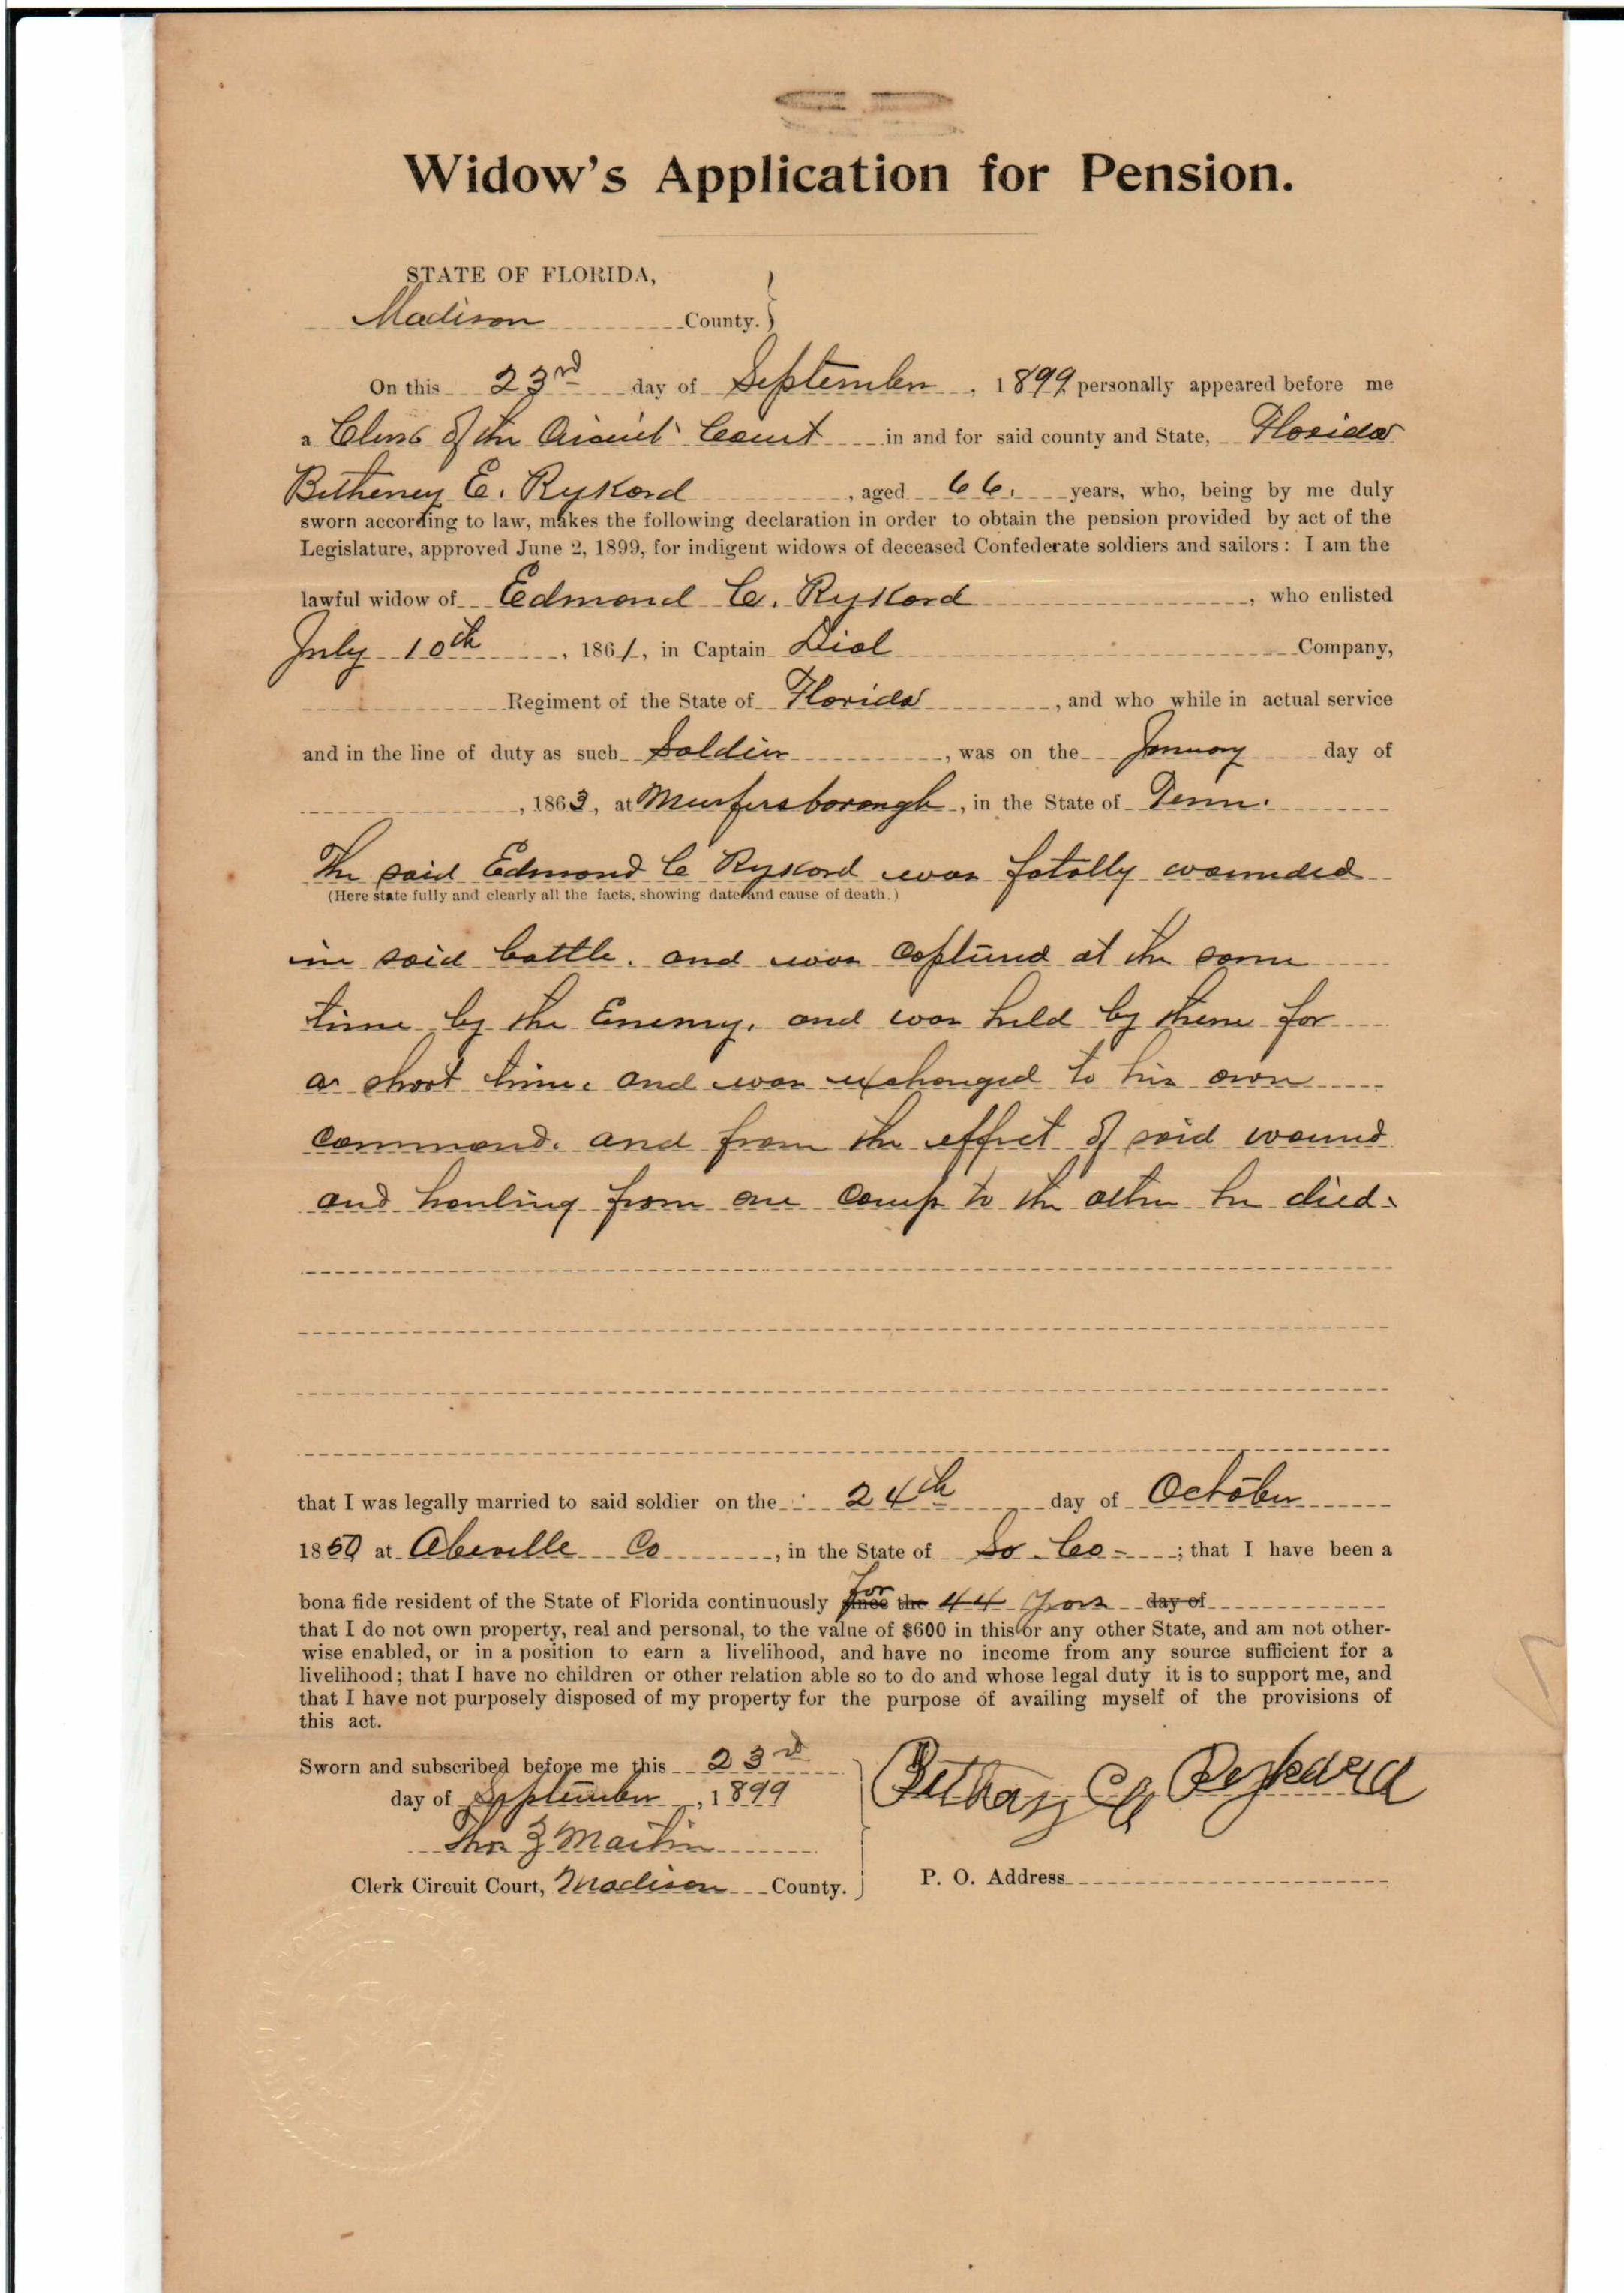 Widow's Application for Pension.
STATE OF FLORIDA,
Madison County.
On this 23rd day of September, 1899 personally appeared before me
a Clerk of the Circuit Court in and for said county and State, Florida
Betheney E. Rykord, aged 66. years, who, being by me duly
sworn according to law, makes the following declaration in order to obtain the pension provided by act of the
Legislature, approved June 2, 1899, for indigent widows of deceased Confederate soldiers and sailors: I am the
lawful widow of Edmond C. Rykord, who enlisted
July 10th, 1861, in Captain Dial Company,
Regiment of the State of Florida, and who while in actual service
and in the line of duty as such Soldier, was on the January day of
, 1863, at Murfersborough, in the State of Tenn.
The said Edmond C Rykord was fatally wounded
(Here state fully and clearly all the facts, showing date and cause of death.)
in said battle. and was captured at the same
time by the Enemy, and was held by them for
a short time. and was exchanged to his own
command. and from the effect of said wound
and hauling from one camp to the other he died.
that I was legally married to said soldier on the 24th day of October
18 at Abeville Co, in the State of So. Co-; that I have been a
bona fide resident of the State of Florida continuously for since the 44 years day of
that I do not own property, real and personal, to the value of $600 in this or any other State, and am not other-
wise enabled, or in a position to earn a livelihood, and have no income from any source sufficient for a
livelihood; that I have no children or other relation able so to do and whose legal duty it is to support me, and
that I have not purposely disposed of my property for the purpose of availing myself of the provisions of
this act.
Sworn and subscribed before me this 23rd
day of September, 1899
Thos Z Martin
Clerk Circuit Court, Madison County.
Bethany Rykard
P. O. Address